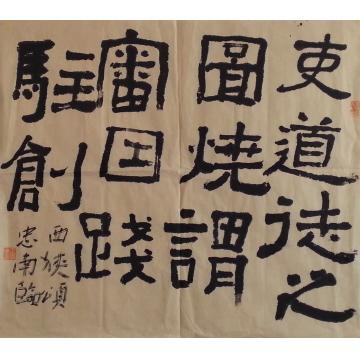 吏道徒之
圖燒謂
審囙踐
駐創
西狹頌
忠南臨